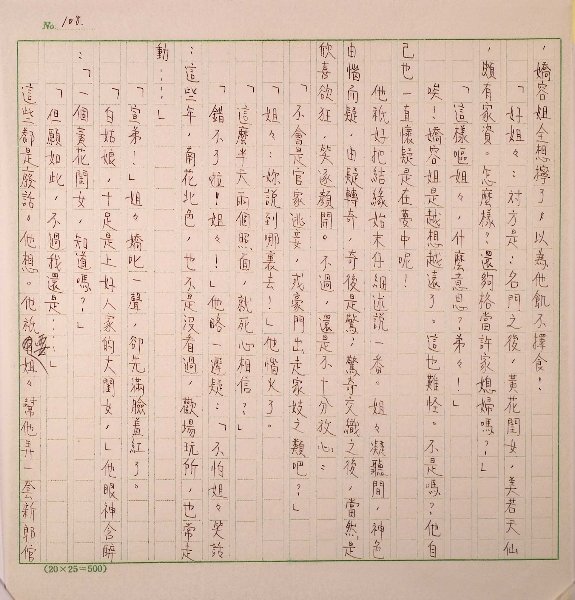 No. 108
，嬌容姐全想擰了，以為他飢不擇食！
「好姐々：対方是：名門之後，黃花閨女，美若天仙
，頗有家資。怎麼樣？還夠格當許家媳婦嗎？！」
「這樣嘔姐々，什麼意思？弟々！」
唉！嬌容姐是越想越遠了。這也難怪。不是嗎？他自
己也一直懷疑是在夢中呢！
他祇好把結緣始末仔細述說一番。姐々凝聽間，神色
由惱而疑，由疑轉奇，奇後是驚，驚奇交織之後，當然是
欣喜欲狂，笑逐顏開。不過，還是不十分放心。
「不會是官家逃妾，或豪門出走家妓之類吧？！」
「姐々：妳說到哪裏去！」他惱火了。
「這麼半天兩個照面，就死心相信？！」
「錯不了啦！姐々！」他略一遲疑：「不怕姐々笑話
：這些年，南花北色，也不是沒看過，歡場玩所，也常走
動……」
「宣弟！」姐々嬌叱一聲，卻先滿臉羞紅了。
「白姑娘，十足是上好人家的大閨女，」他眼神含醉
：「一個黃花閨女，知道嗎？！」
「但願如此，不過我還是：」
這些都是廢話。他想。他祇要姐々幫他弄一套新郎倌
(20×25=500)